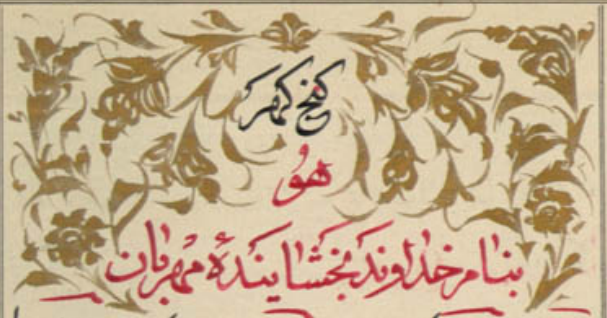 کنج کهر
هُو
بنام خداوند بخشایندهٔ مهربان